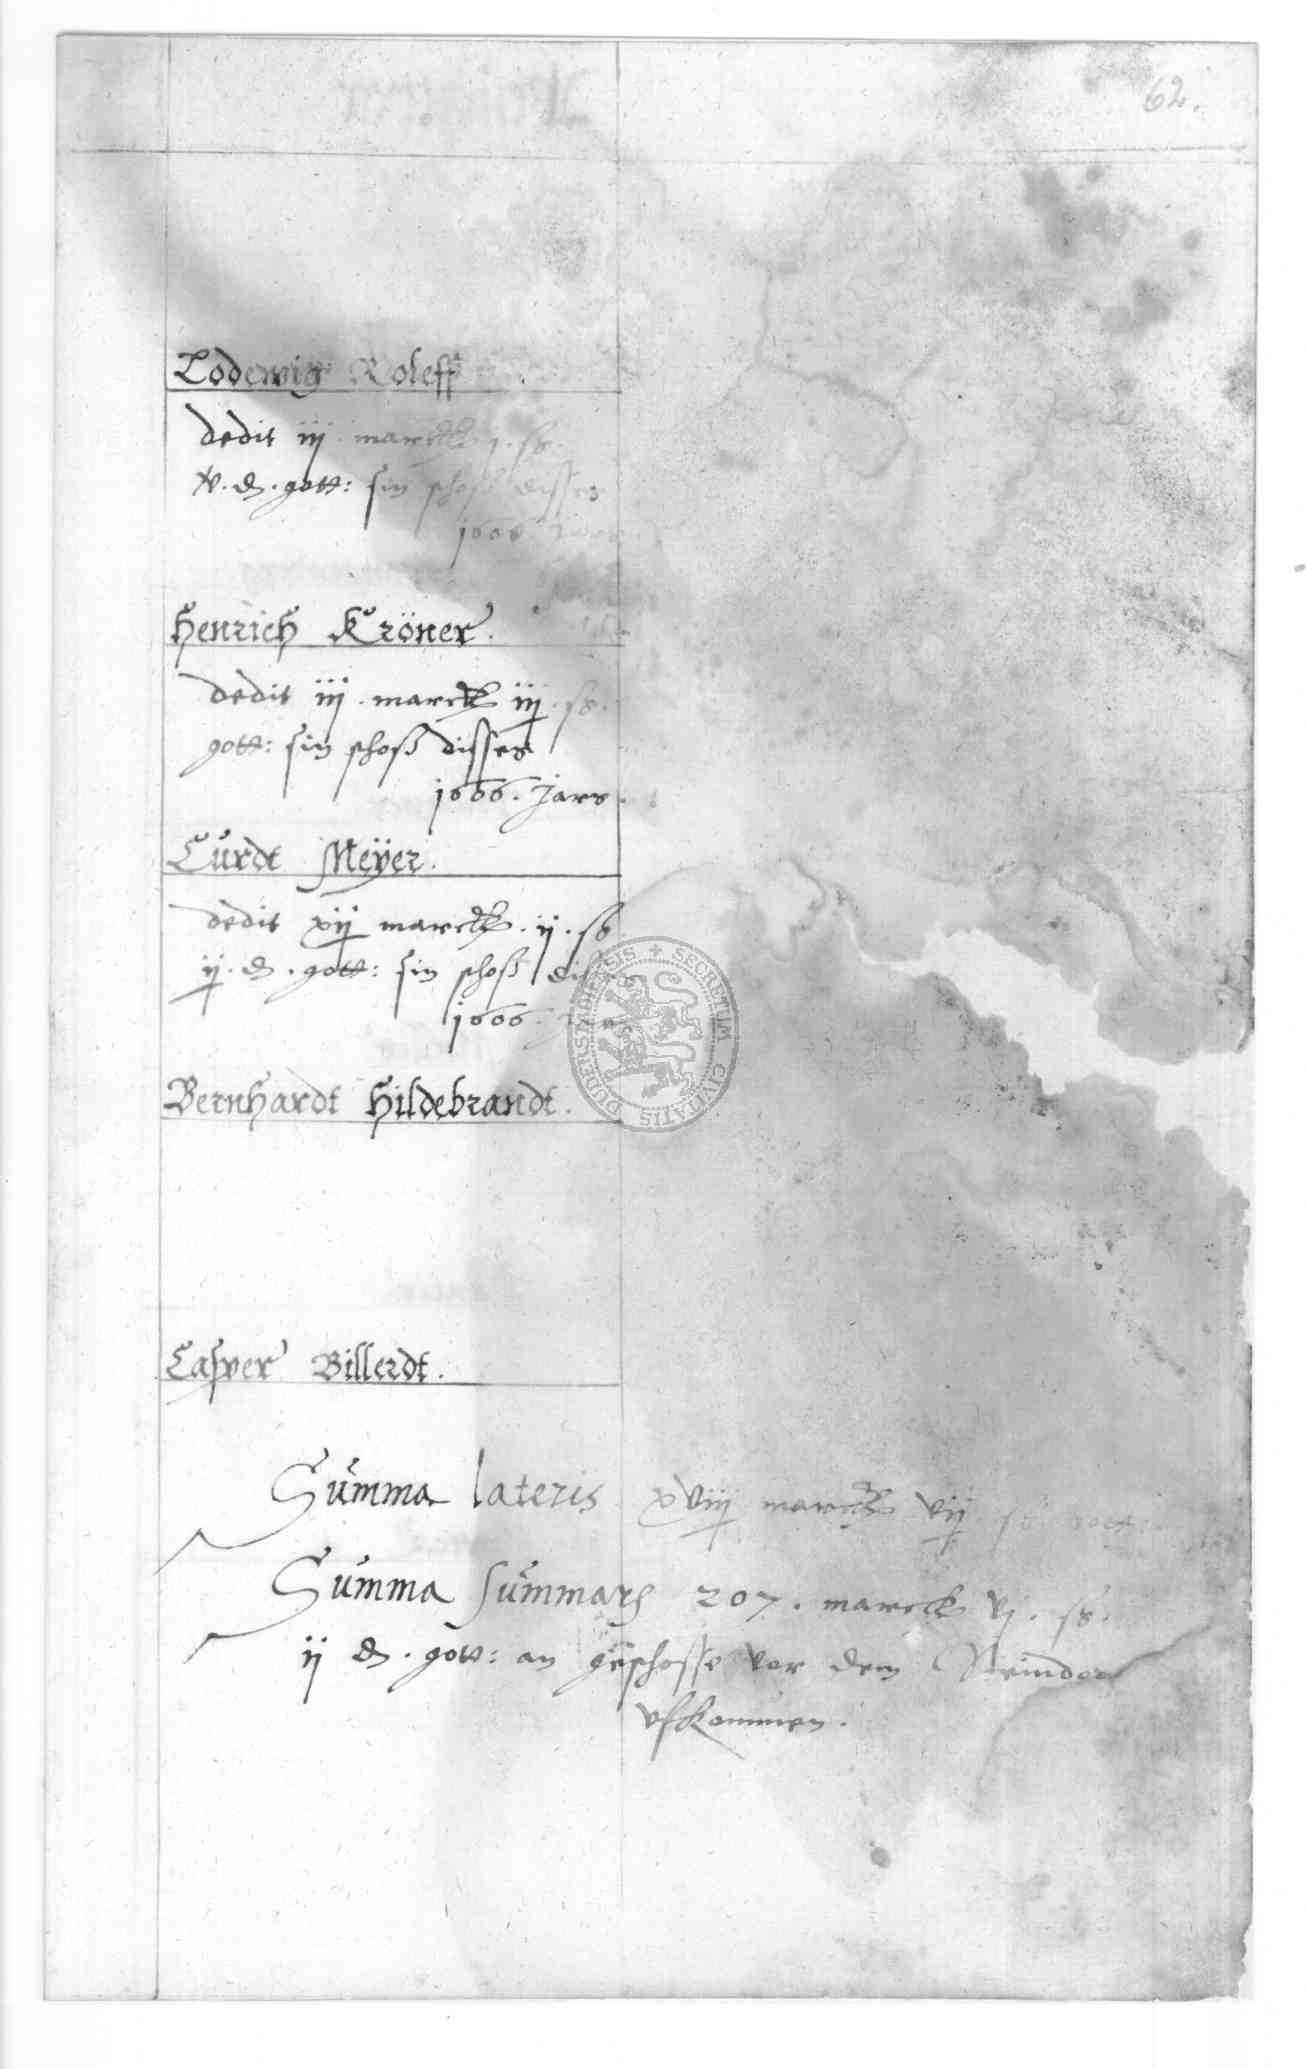 62.
Lodewig Roleff
dedit iij marck j. ss.
v. d. gott: sin schoß disses
1606 Jars
Henrich Kröner.
dedit iij. marck iij ss.
gott: sin schoß disses
1606. Jars.
Curdt Meÿer.
dedit xij marck. ij. ss
ij. d. gott: sin schoß
1606.
Bernhardt Hildebrandt.
Casper Billerdt.
Summa lateris xviij marck vij ss gott:
Summa summarum 207. marck vj. ss.
ij d. gott: an geschosse vor dem Steindor
ufkommen.
SECRETUM CIVITATIS DUDERSTADIENSIS